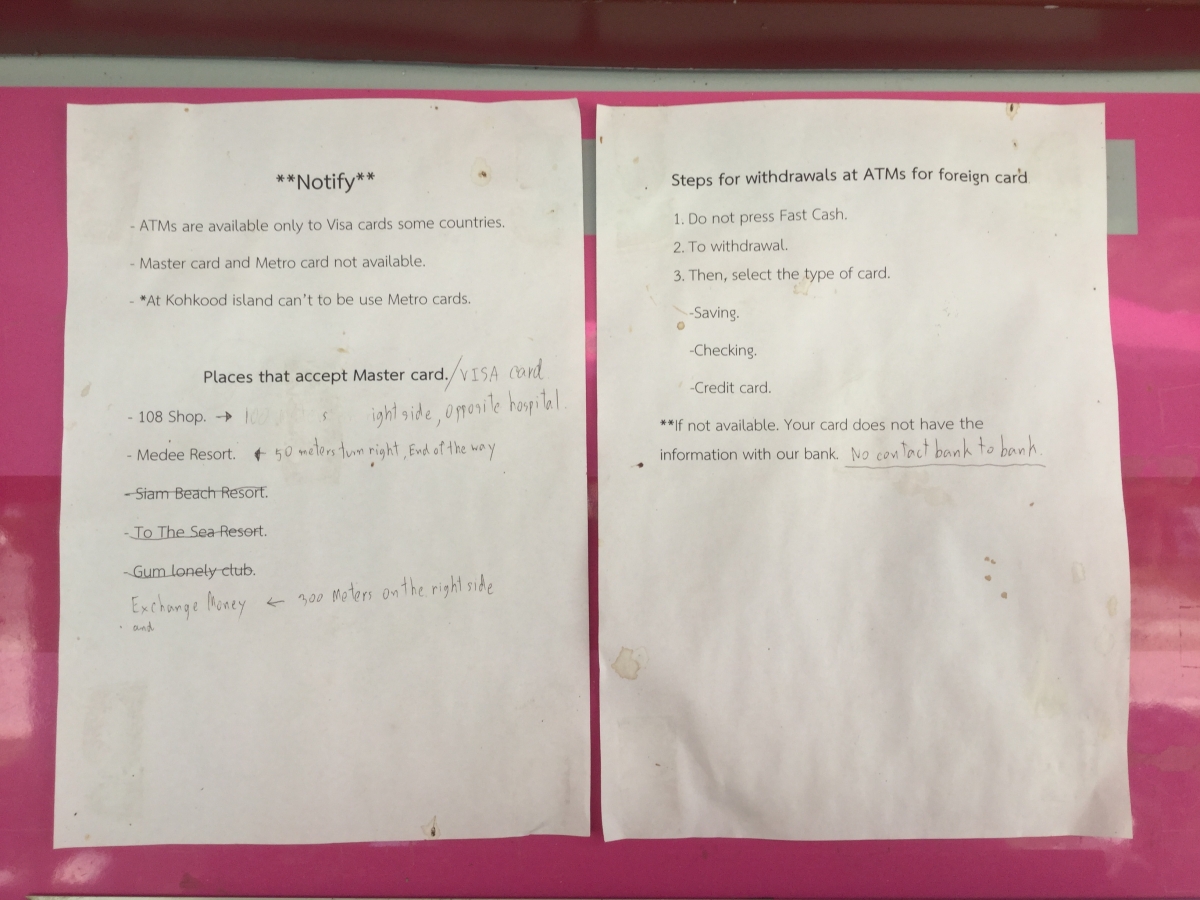 **Notify**
- ATMs are available only to Visa cards some countries.
- Master card and Metro card not available.
- *At Kohkood island can't to be use Metro cards.
Places that accept Master card./VISA card
- 108 Shop. → side, opposite hospital.
- Medee Resort. ← 50 meters turn right, End of the way
- Siam Beach Resort.
- To The Sea Resort.
- Gum lonely club.
Exchange Money ← 300 Meters on the right side
and
Steps for withdrawals at ATMs for foreign card
1. Do not press Fast Cash.
2. To withdrawal.
3. Then, select the type of card.
-Saving.
-Checking.
-Credit card.
**If not available. Your card does not have the
information with our bank. No contact bank to bank.